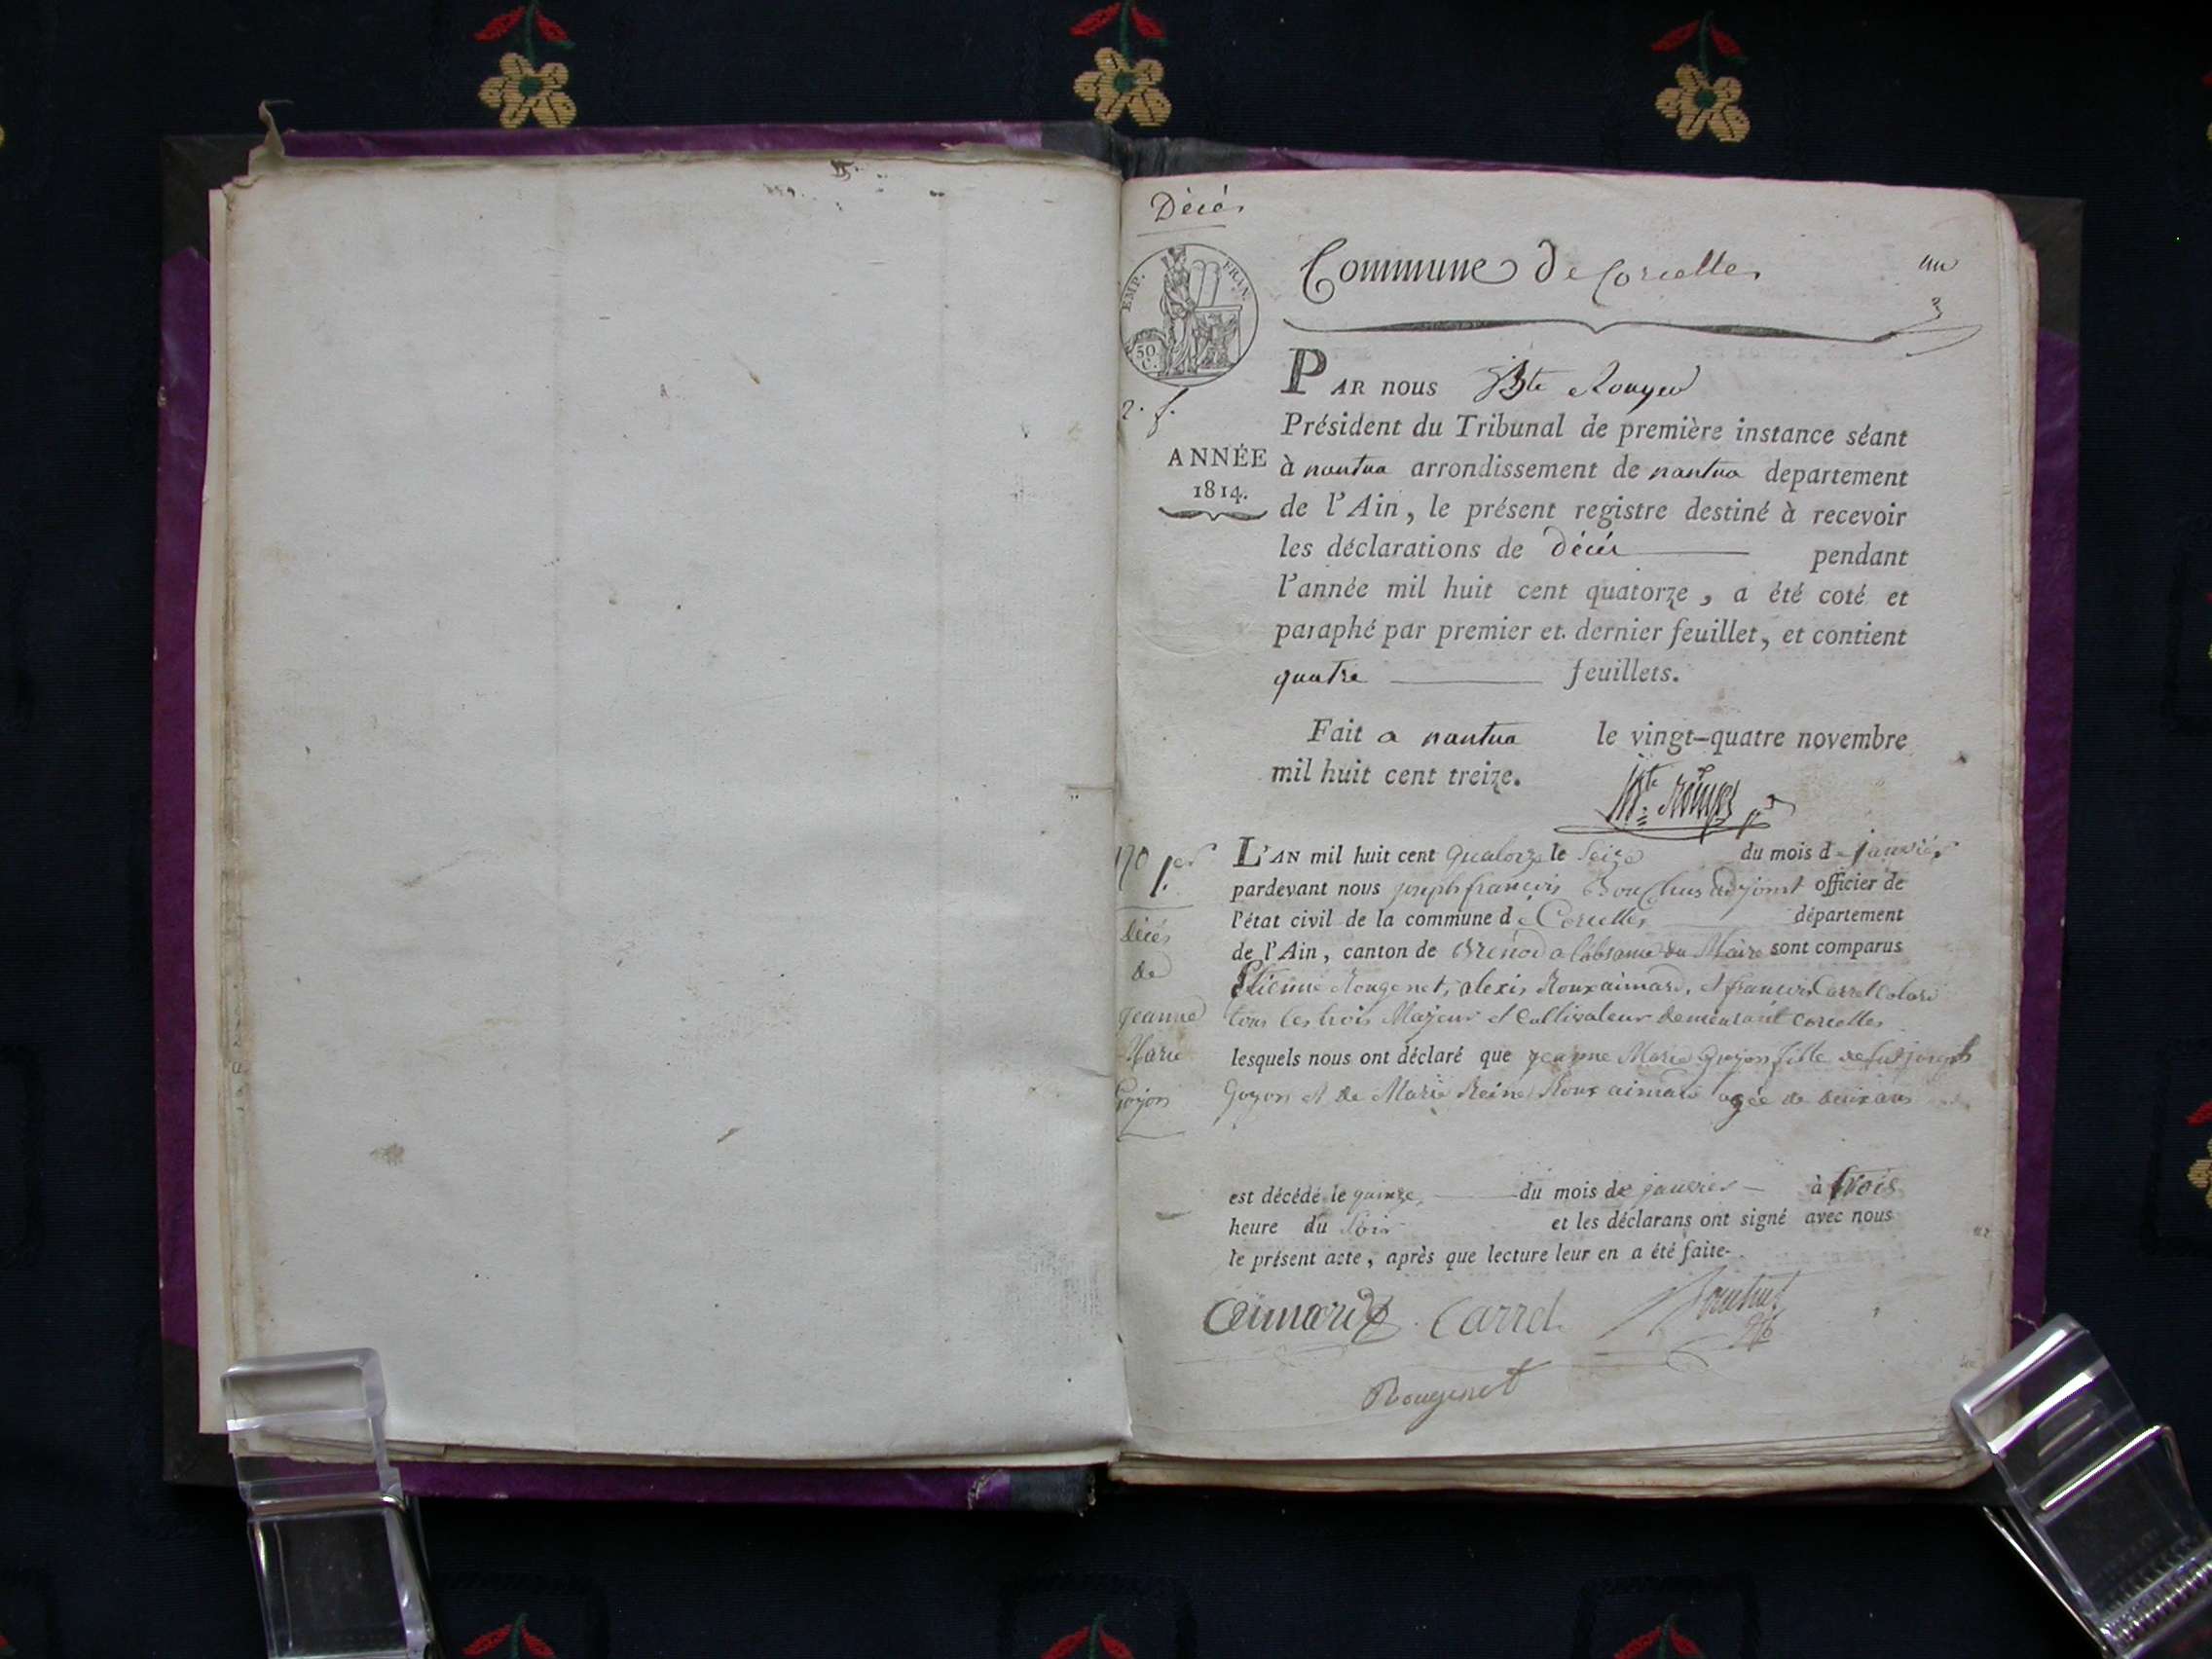 Décés
Commune de Corcelles
un
3
EMP. FRAN.
50 C.
2. f.
PAR nous JBte Rouyer
Président du Tribunal de première instance séant
ANNÉE
1814.
à nantua arrondissement de nantua departement
de l'Ain, le présent registre destiné à recevoir
les déclarations de décés pendant
l'année mil huit cent quatorze, a été coté et
paraphé par premier et dernier feuillet, et contient
quatre feuillets.
Fait a nantua le vingt-quatre novembre
mil huit cent treize.
JBte Rouyer
L'AN mil huit cent quatorze le Seize du mois de janvier
pardevant nous joseph francois Bouchus adjoint officier de
l'état civil de la commune de Corcelles département
de l'Ain, canton de Brenod a labsance du Maire sont comparus
Etienne Rougenet, alexis Rouxaimard, et francois Carrel Colard
tous les trois Majeur et Cultivateur demeurant corcelles
lesquels nous ont déclaré que jeanne Marie goyon fille de fut joseph
goyon et de Marie Reine Roux aimard agée de deux ans
est décédé le quinze du mois de janvier à trois
heure du soir et les déclarans ont signé avec nous
le présent acte, après que lecture leur en a été faite.
N° 1er
Décés
de
jeanne
Marie
Goyon
Aimard Carrel Bouchus
Rougenet